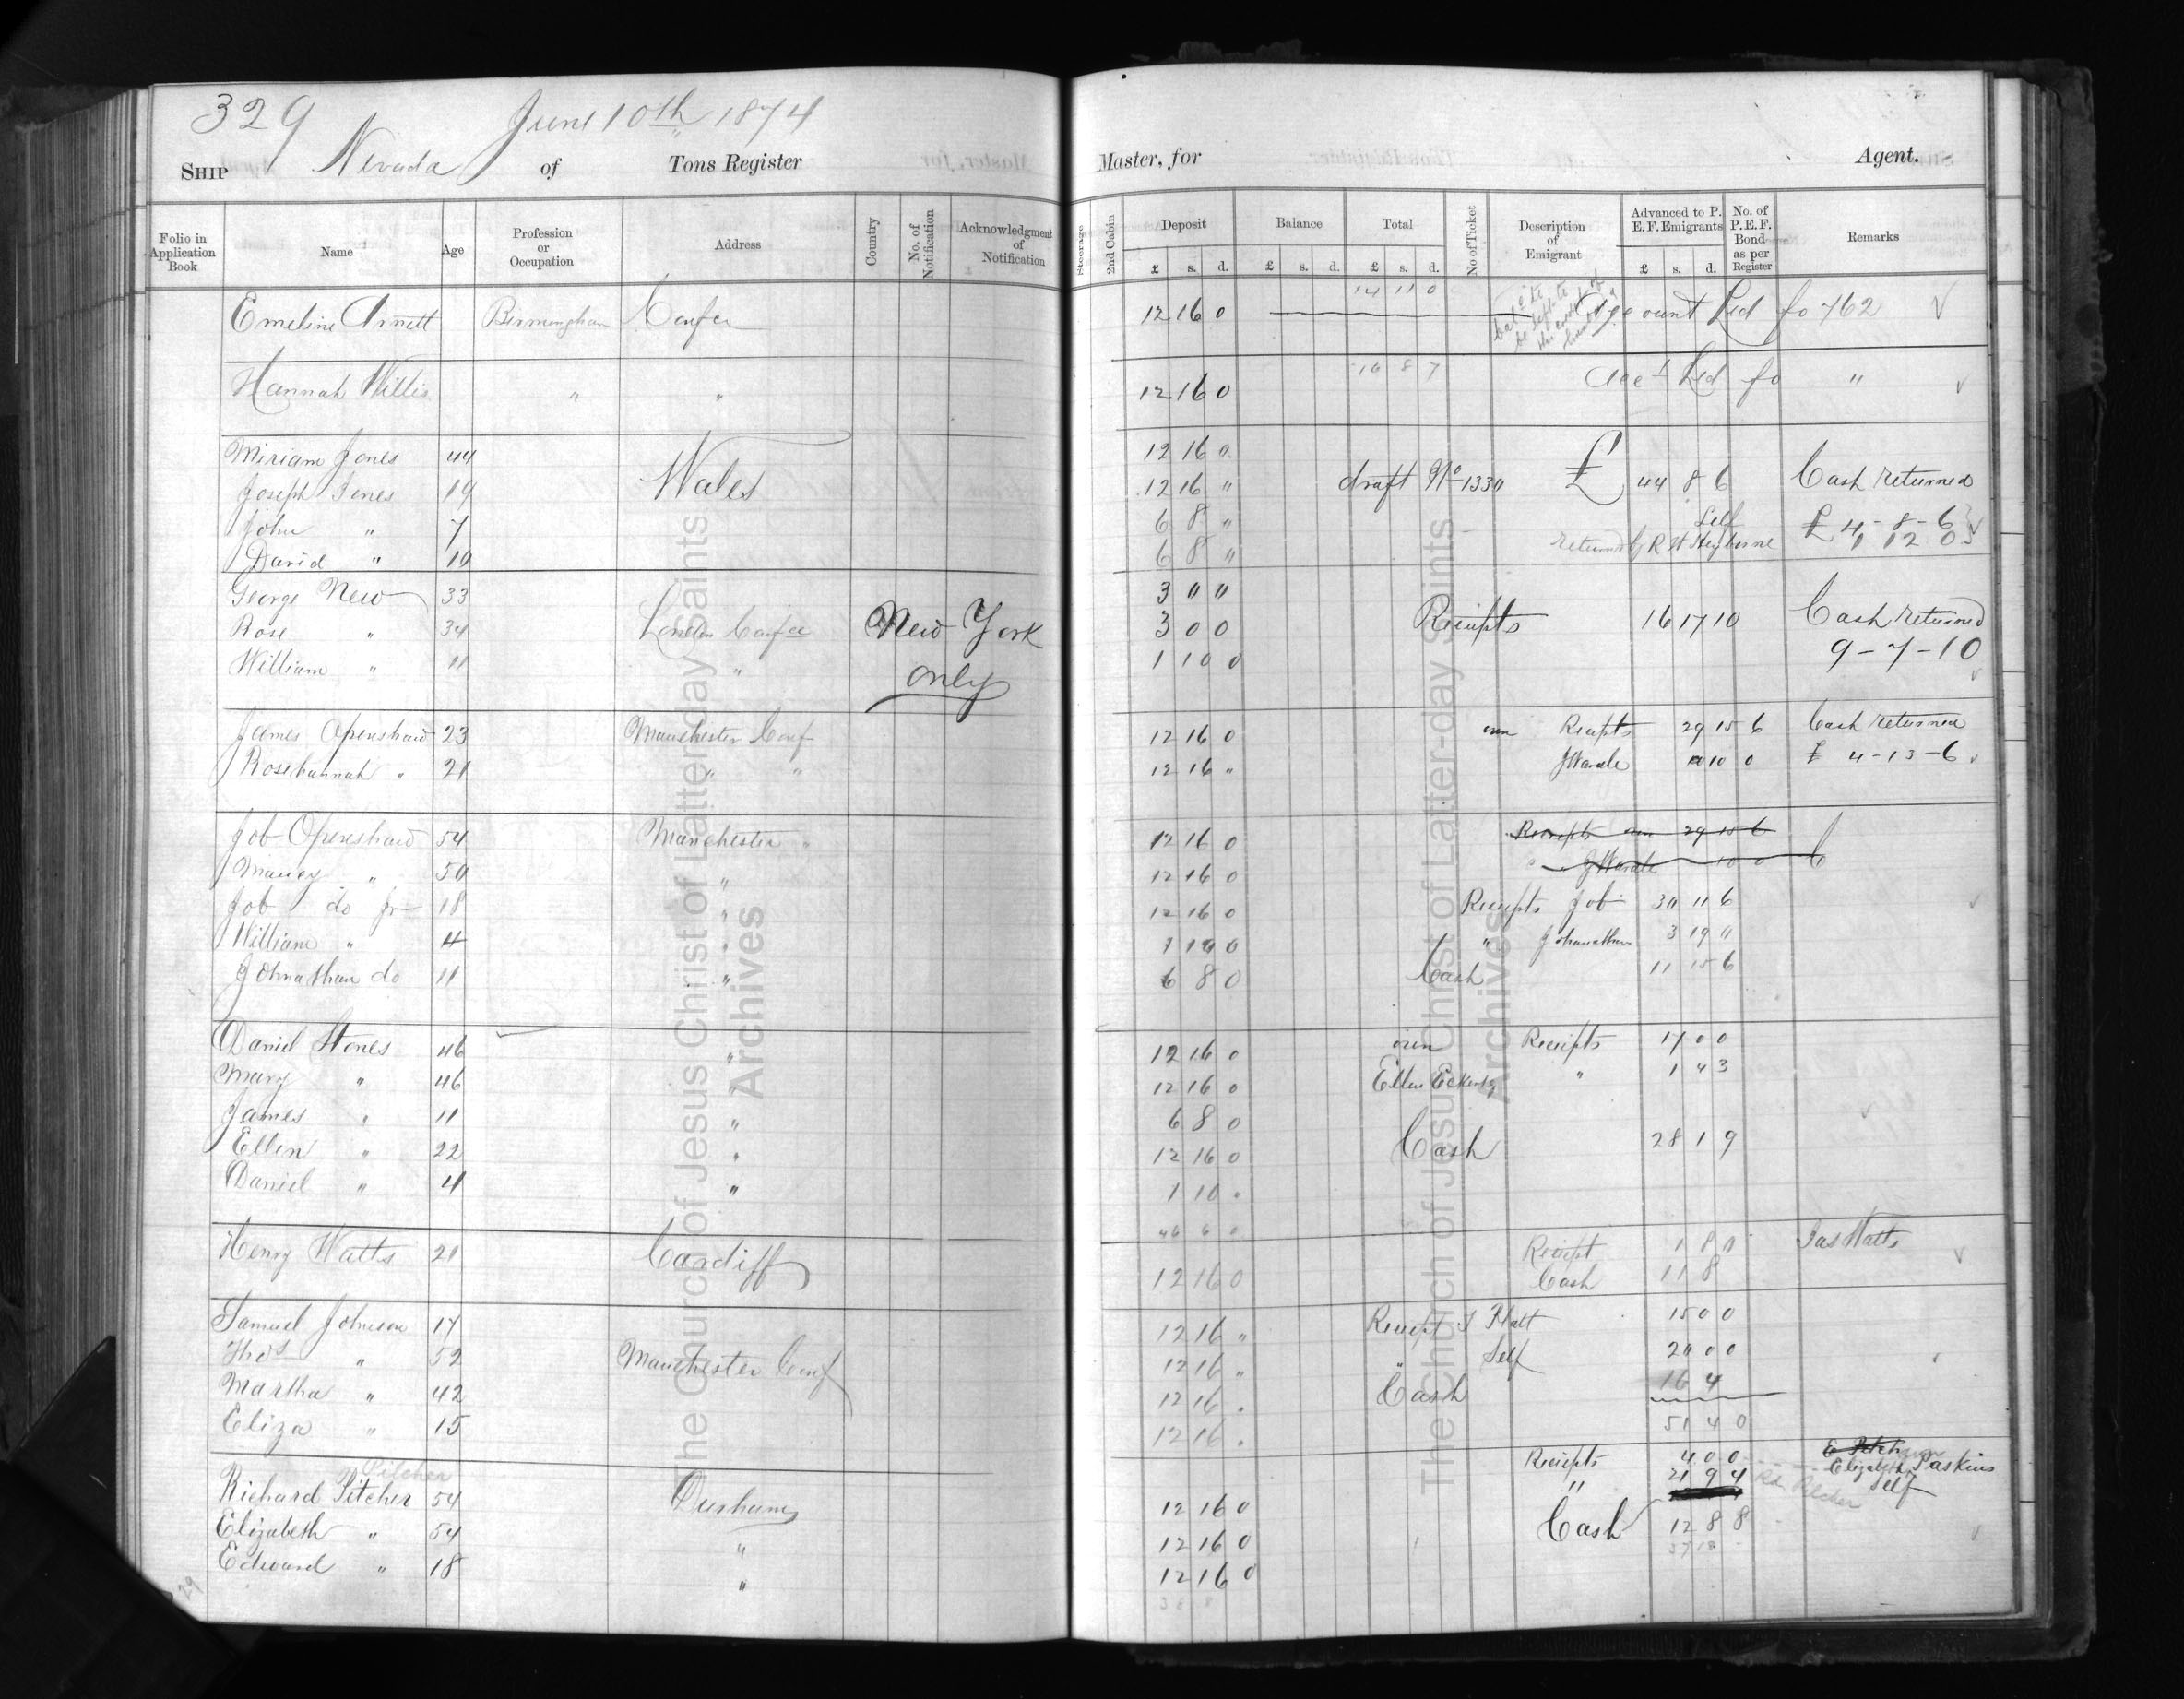 329 June 10th 1874
SHIP Nevada of Tons Register Master, for Agent.
Folio in Application Book Name Age Profession or Occupation Address Country No. of Notification Acknowledgment of Notification Steerage 2nd Cabin Deposit Balance Total No of Ticket Description of Emigrant Advanced to P. E. F. Emigrants No. of P.E.F. Bond as per Register Remarks
£ s. d. £ s. d. £ s. d. £ s. d.
14 11 0
Emeline Arnett Birmingham Confce 12 16 0 Account Led fo 762 √
16 8 7
Hannah Willis " " 12 16 0 Acct Led fo " √
Miriam Jones 44 12 16 "
Joseph Jones 19 Wales 12 16 " draft No 1330 £ 44 8 6 Cash returned
John " 7 6 8 " Self £ 4-8-6
David " 10 6 8 " returned by R W Heyborne 1 12 0 √
George New 33 3 " "
Rose " 34 London Confce New York 3 0 0 Receipts 16 17 10 Cash returned
William " 11 " only 1 10 0 9-7-10 √
James Openshaw 23 Manchester Conf 12 16 0 own Receipts 29 15 6 Cash returned
Rosehannah " 21 " " 12 16 " J Wardle 10 0 £ 4-13-6 √
Job Openshaw 54 Manchester " 12 16 0 Receipts own 29 15 6
Maney " 50 " 12 16 0 J Wardle 10 0
Job do jr 18 " 12 16 0 Receipts Job 30 11 6 √
William " 4 " 1 10 0 " Johnathan 3 19 0
Johnathan do 11 " 6 8 0 Cash 11 15 6
Daniel Stones 46 " 12 16 0 own Receipts 17 0 0
Mary " 46 " 12 16 0 Ellen " 1 4 3
James " 11 " 6 8 0 √
Ellen " 22 " 12 16 0 Cash 28 1 9
Daniel " 4 " 1 10 "
46 6 0
Henry Watts 21 Cardiff 12 16 0 Receipt 1 8 0 Jas Watts √
Cash 11 8
Samuel Johnson 17 12 16 " Receipt S Platt 15 0 0
Thos " 52 Manchester Conf 12 16 " " Self 20 0 0
Martha " 42 12 16 " Cash 16 4
Eliza " 15 12 16 " 51 4 0
Receipts 4 0 0 Elizabeth Paskins
Pilcher " 21 9 4 Self
Richard Pitcher 54 Durham 12 16 0 Rd Pilcher
Elizabeth " 54 " 12 16 0 Cash 12 8 8
Edward " 18 " 12 16 0
29
The Church of Jesus Christ of Latter-day Saints
Archives
The Church of Jesus Christ of Latter-day Saints
Archives